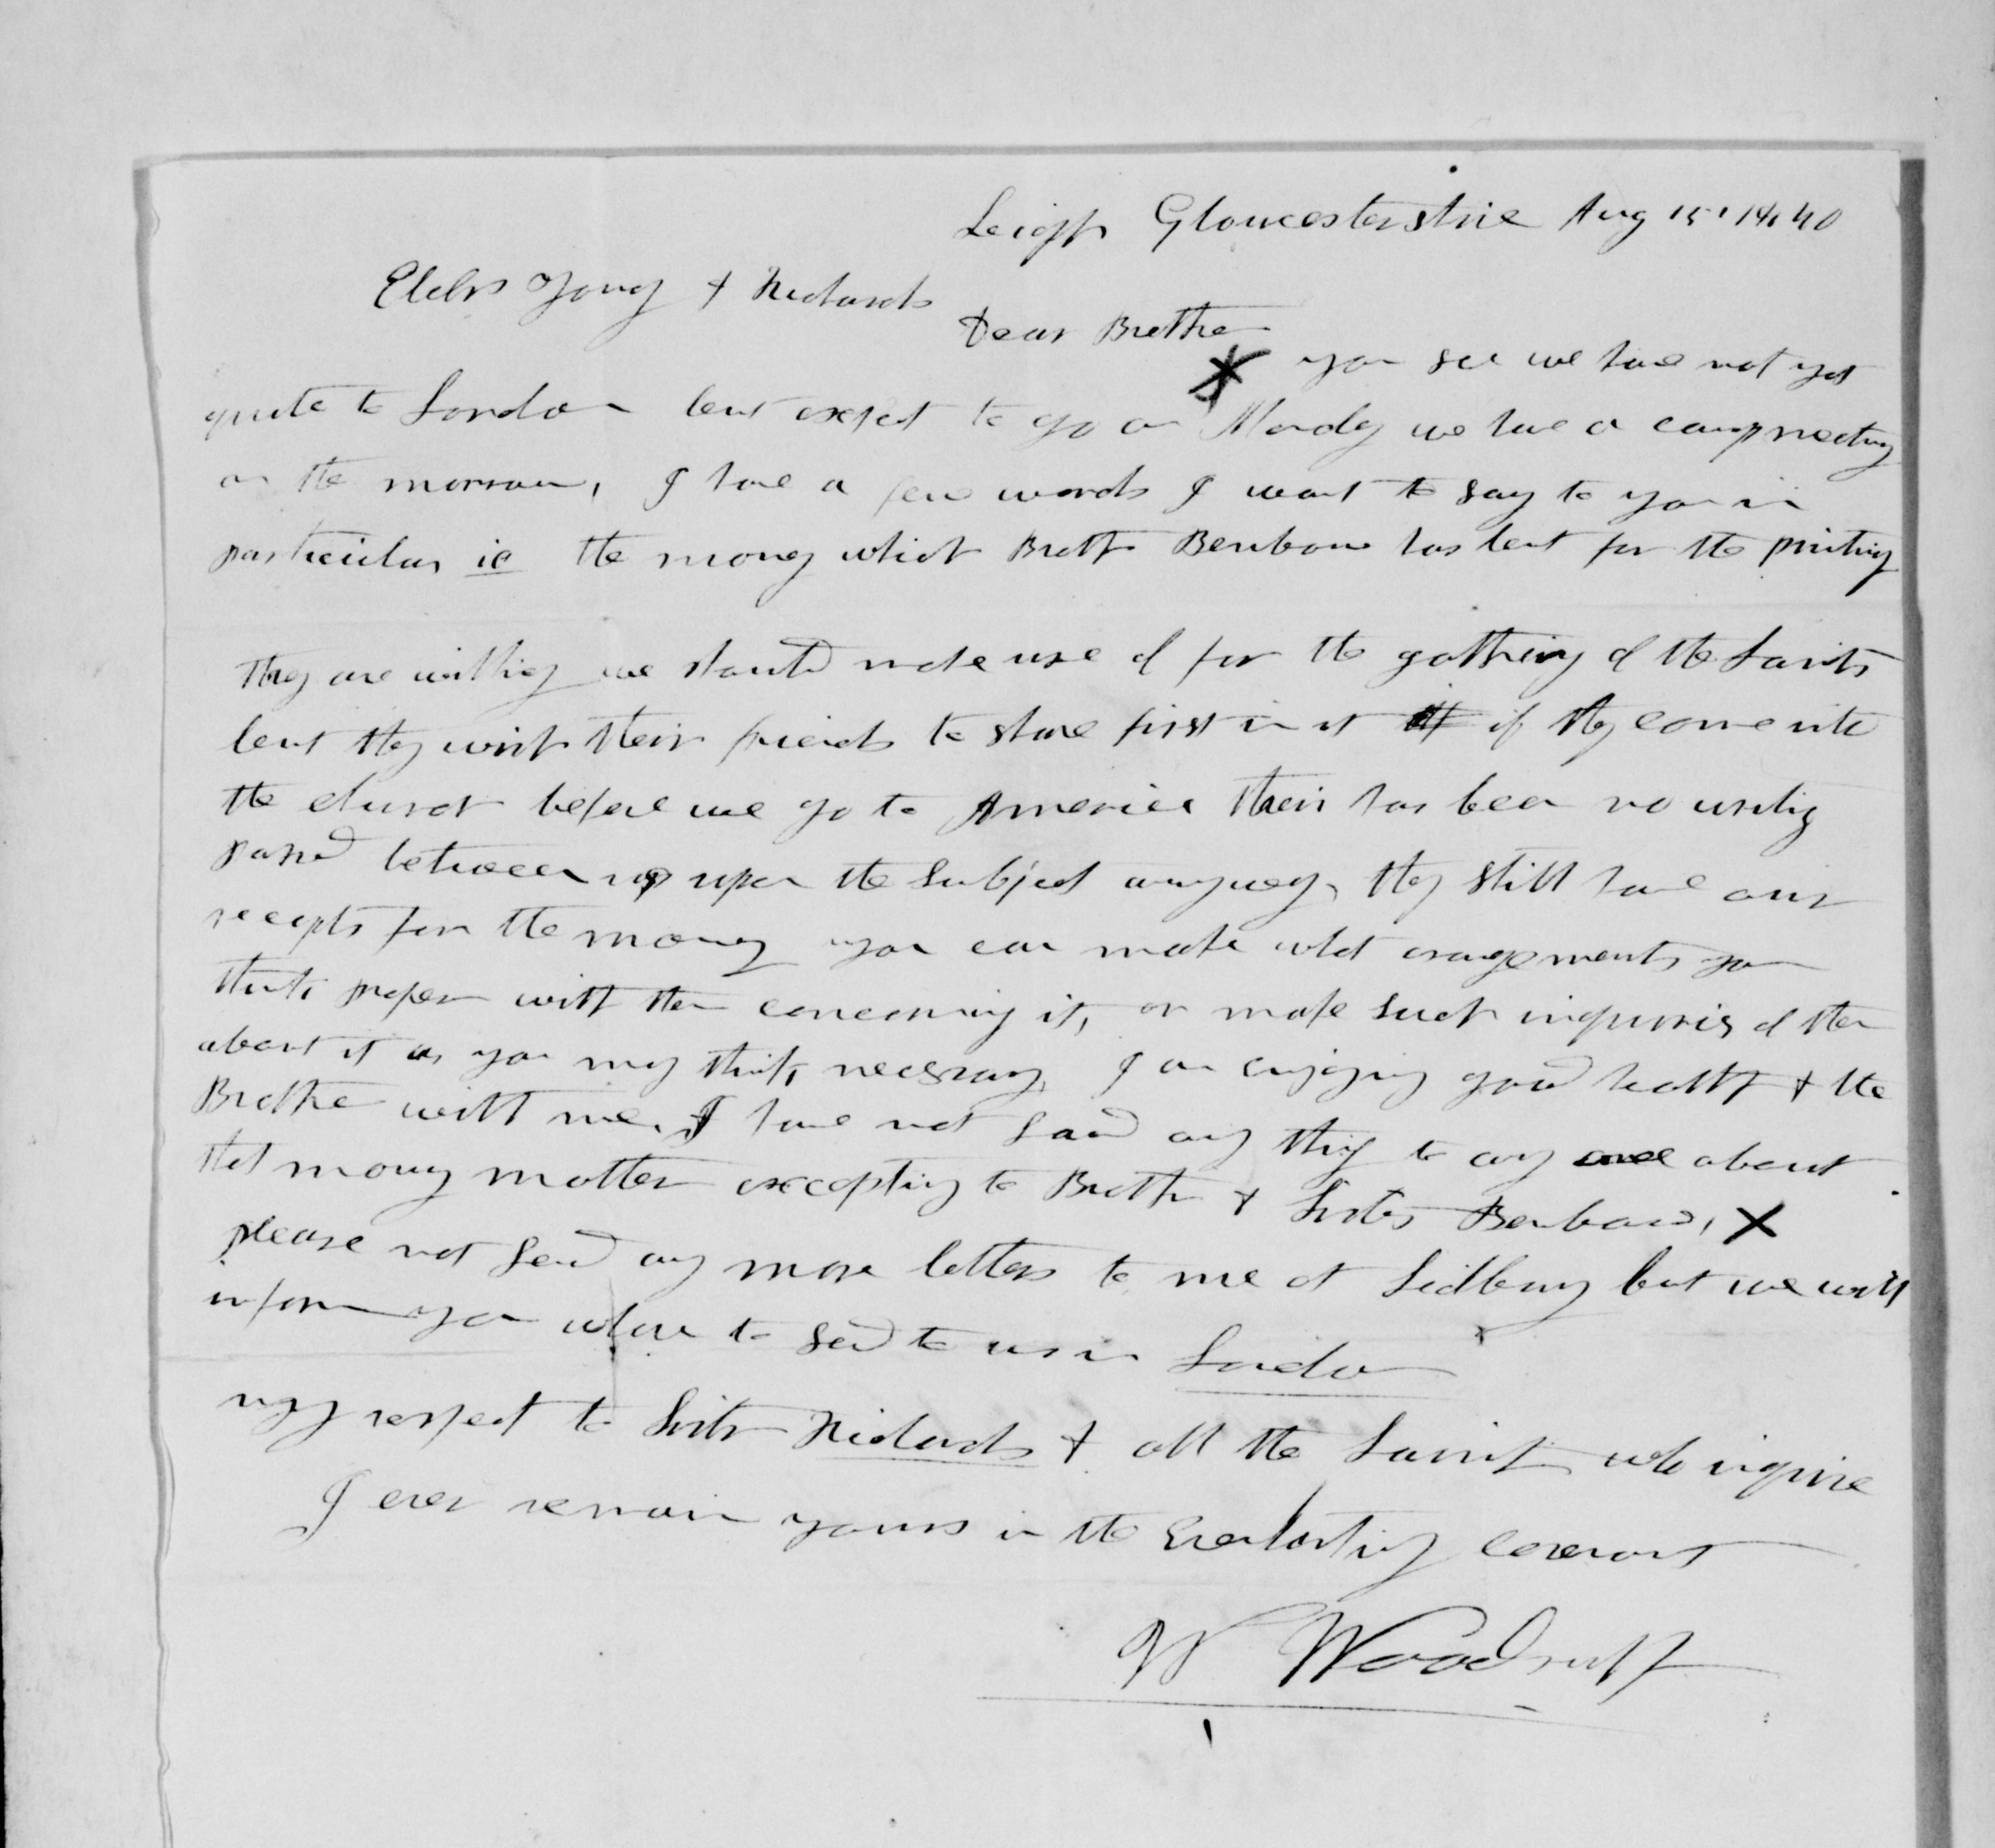 Leigh Gloucestershire Aug 15th 1840
Elders Young & Richards
Dear Brethren
you see we have not got
quite to London but expect to go on Monday we have a camp meeting
on the morrow, I have a few words I want to say to you in
particular ie the money which Brother Benbow has lent for the printing
they are willing we should make use of for the gathering of the Saints
but they wish their friends to share first in it if they come into
the church before we go to America their has been no writing
passd between us upon the subject anyway, they still have our
recepts for the money you can make what arangements you
think proper with them concerning it, or make such inquiries of them
about it as you may think necessary I am enjoying good health & the
Brethren with me. I have not said any thing to any one about
that money matter excepting to Brother & Sister Benbow, X
please not send any more letters to me at Ledbury but we will
inform you where to send to us in London
my respect to Sister Richards & all the Saints who inquire
I ever remain yours in the Everlasting covenant
W Woodruff